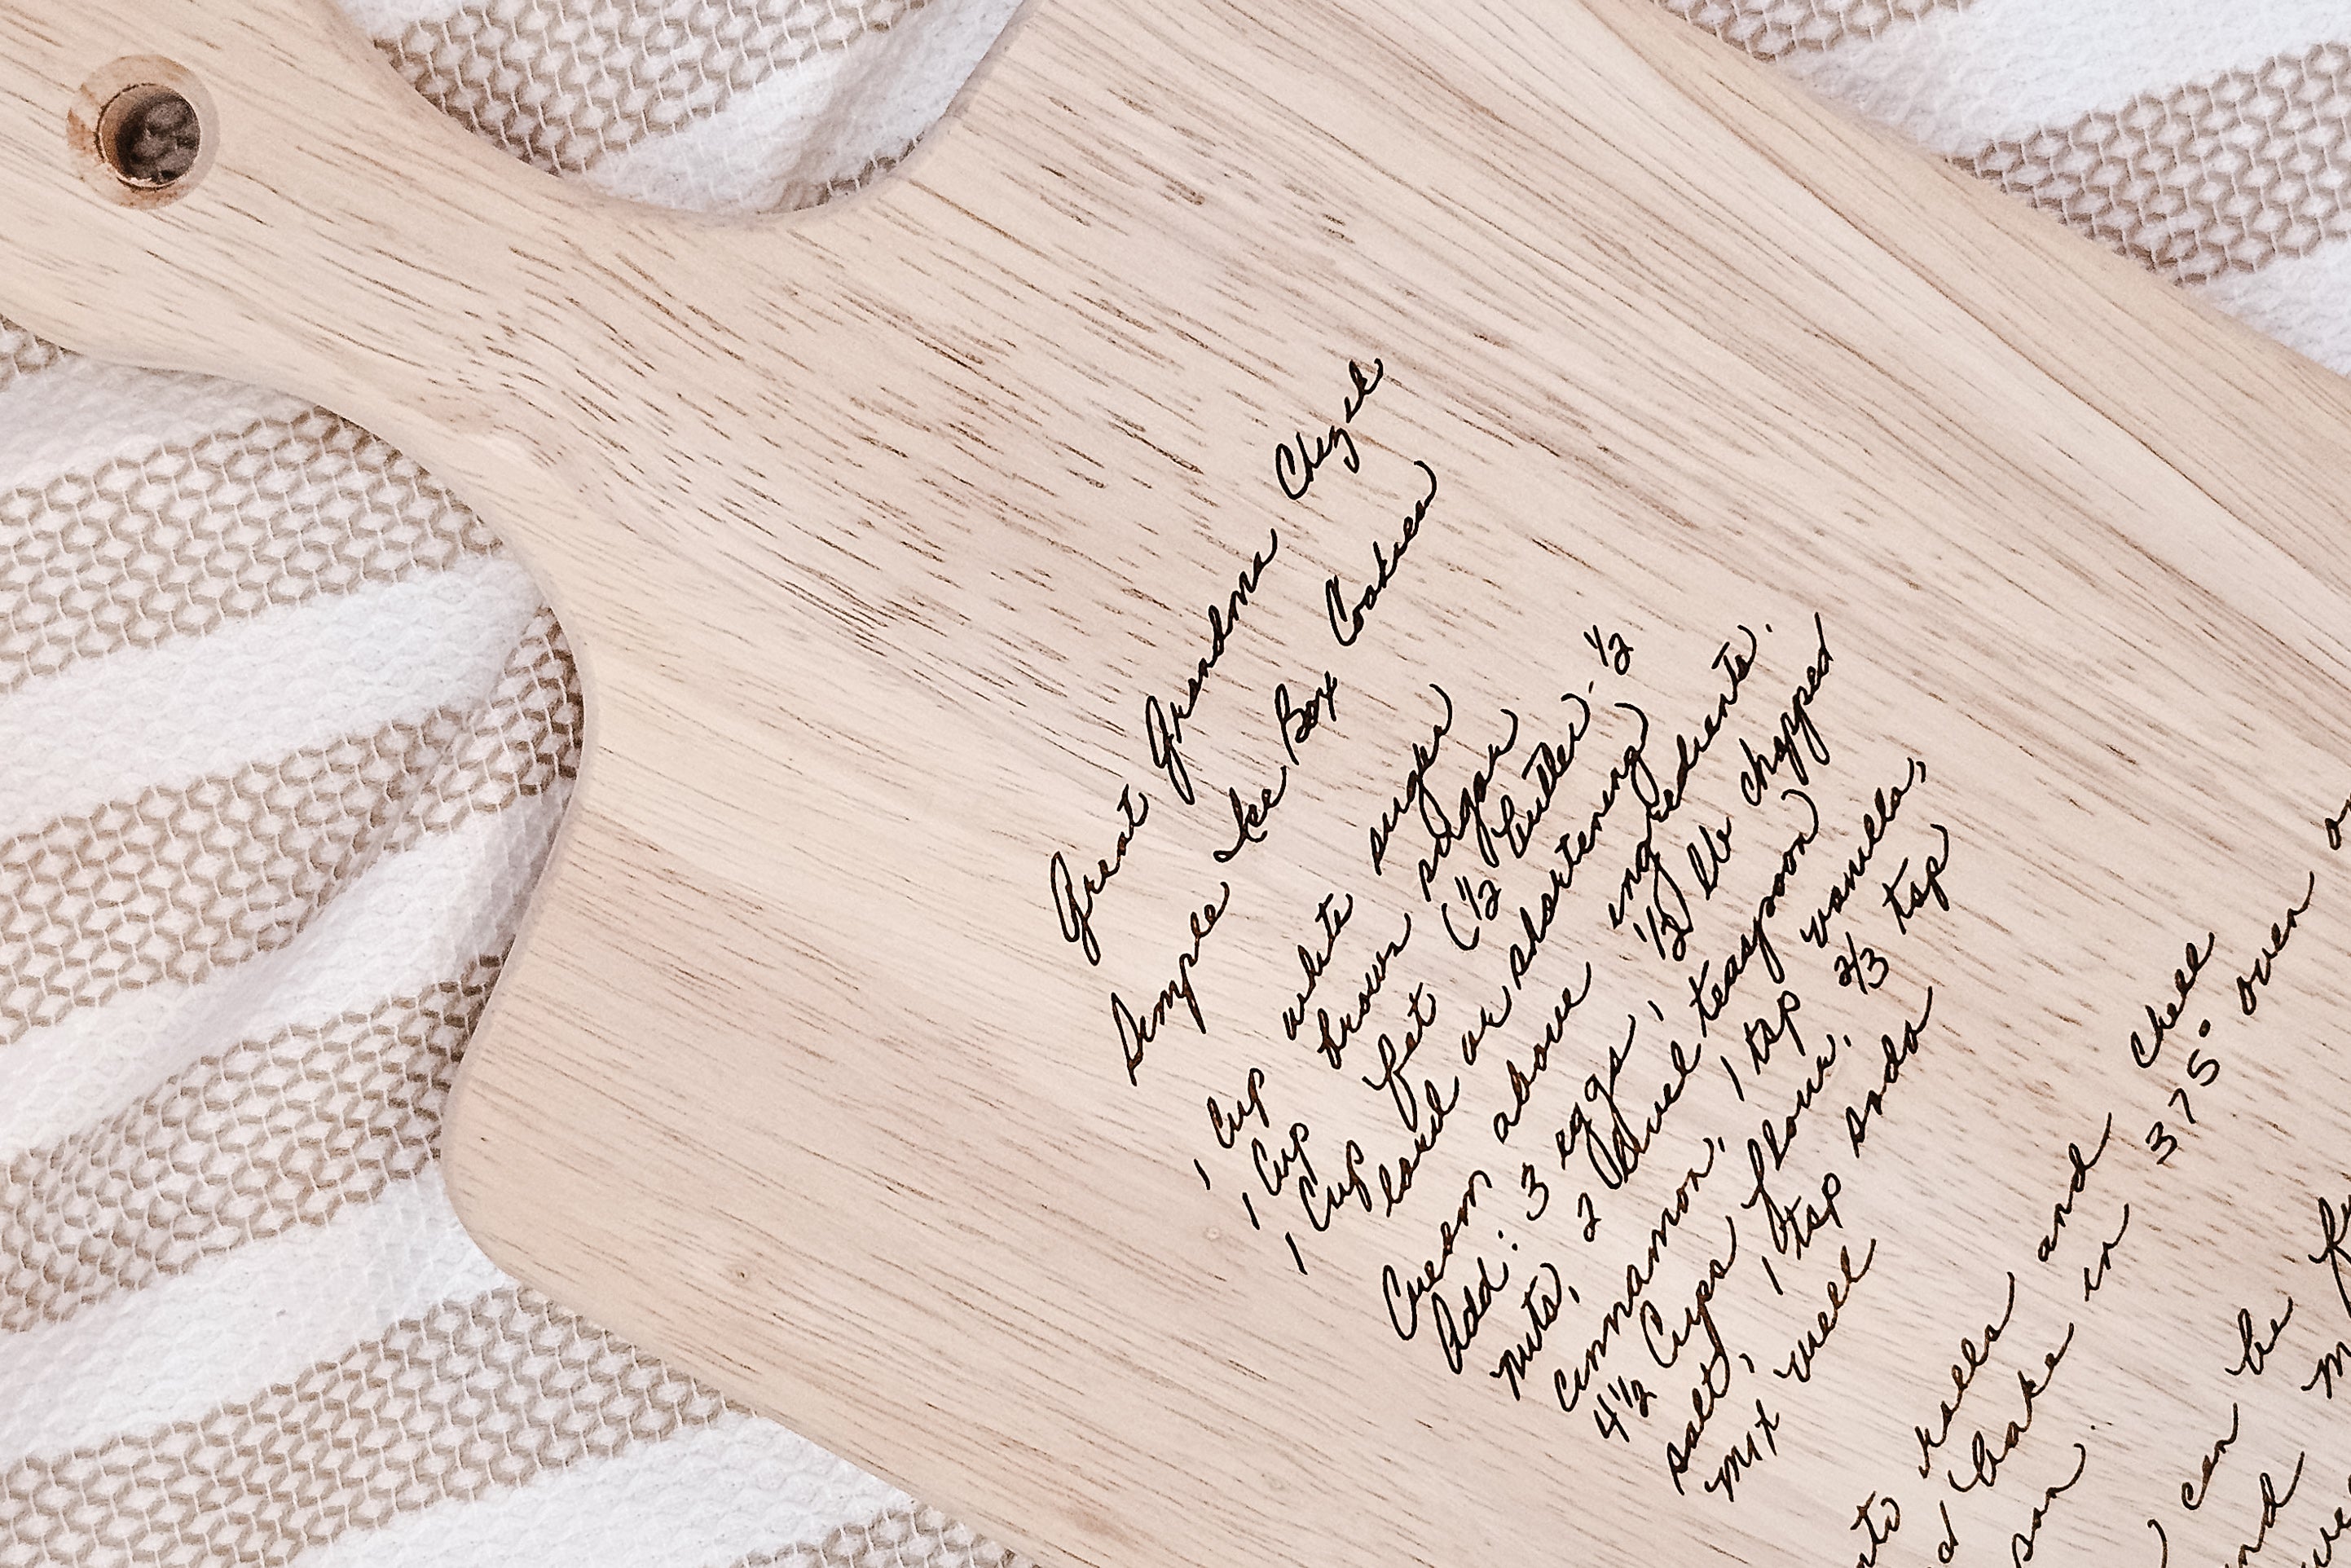 Great Grandma
Simple Ice Box Cookies
1 Cup white sugar
1 Cup brown sugar
1 Cup fat (1/2 butter - 1/2
lard or shortening)
Cream above ingredients.
Add: 3 eggs, 1/2 lb chopped
nuts, 2 level teaspoon
cinnamon, 1 tsp vanilla,
4 1/2 Cups flour, 2/3 tsp
salt, 1 tsp soda
Mix well
rolls and chill
bake in 375° oven
can be